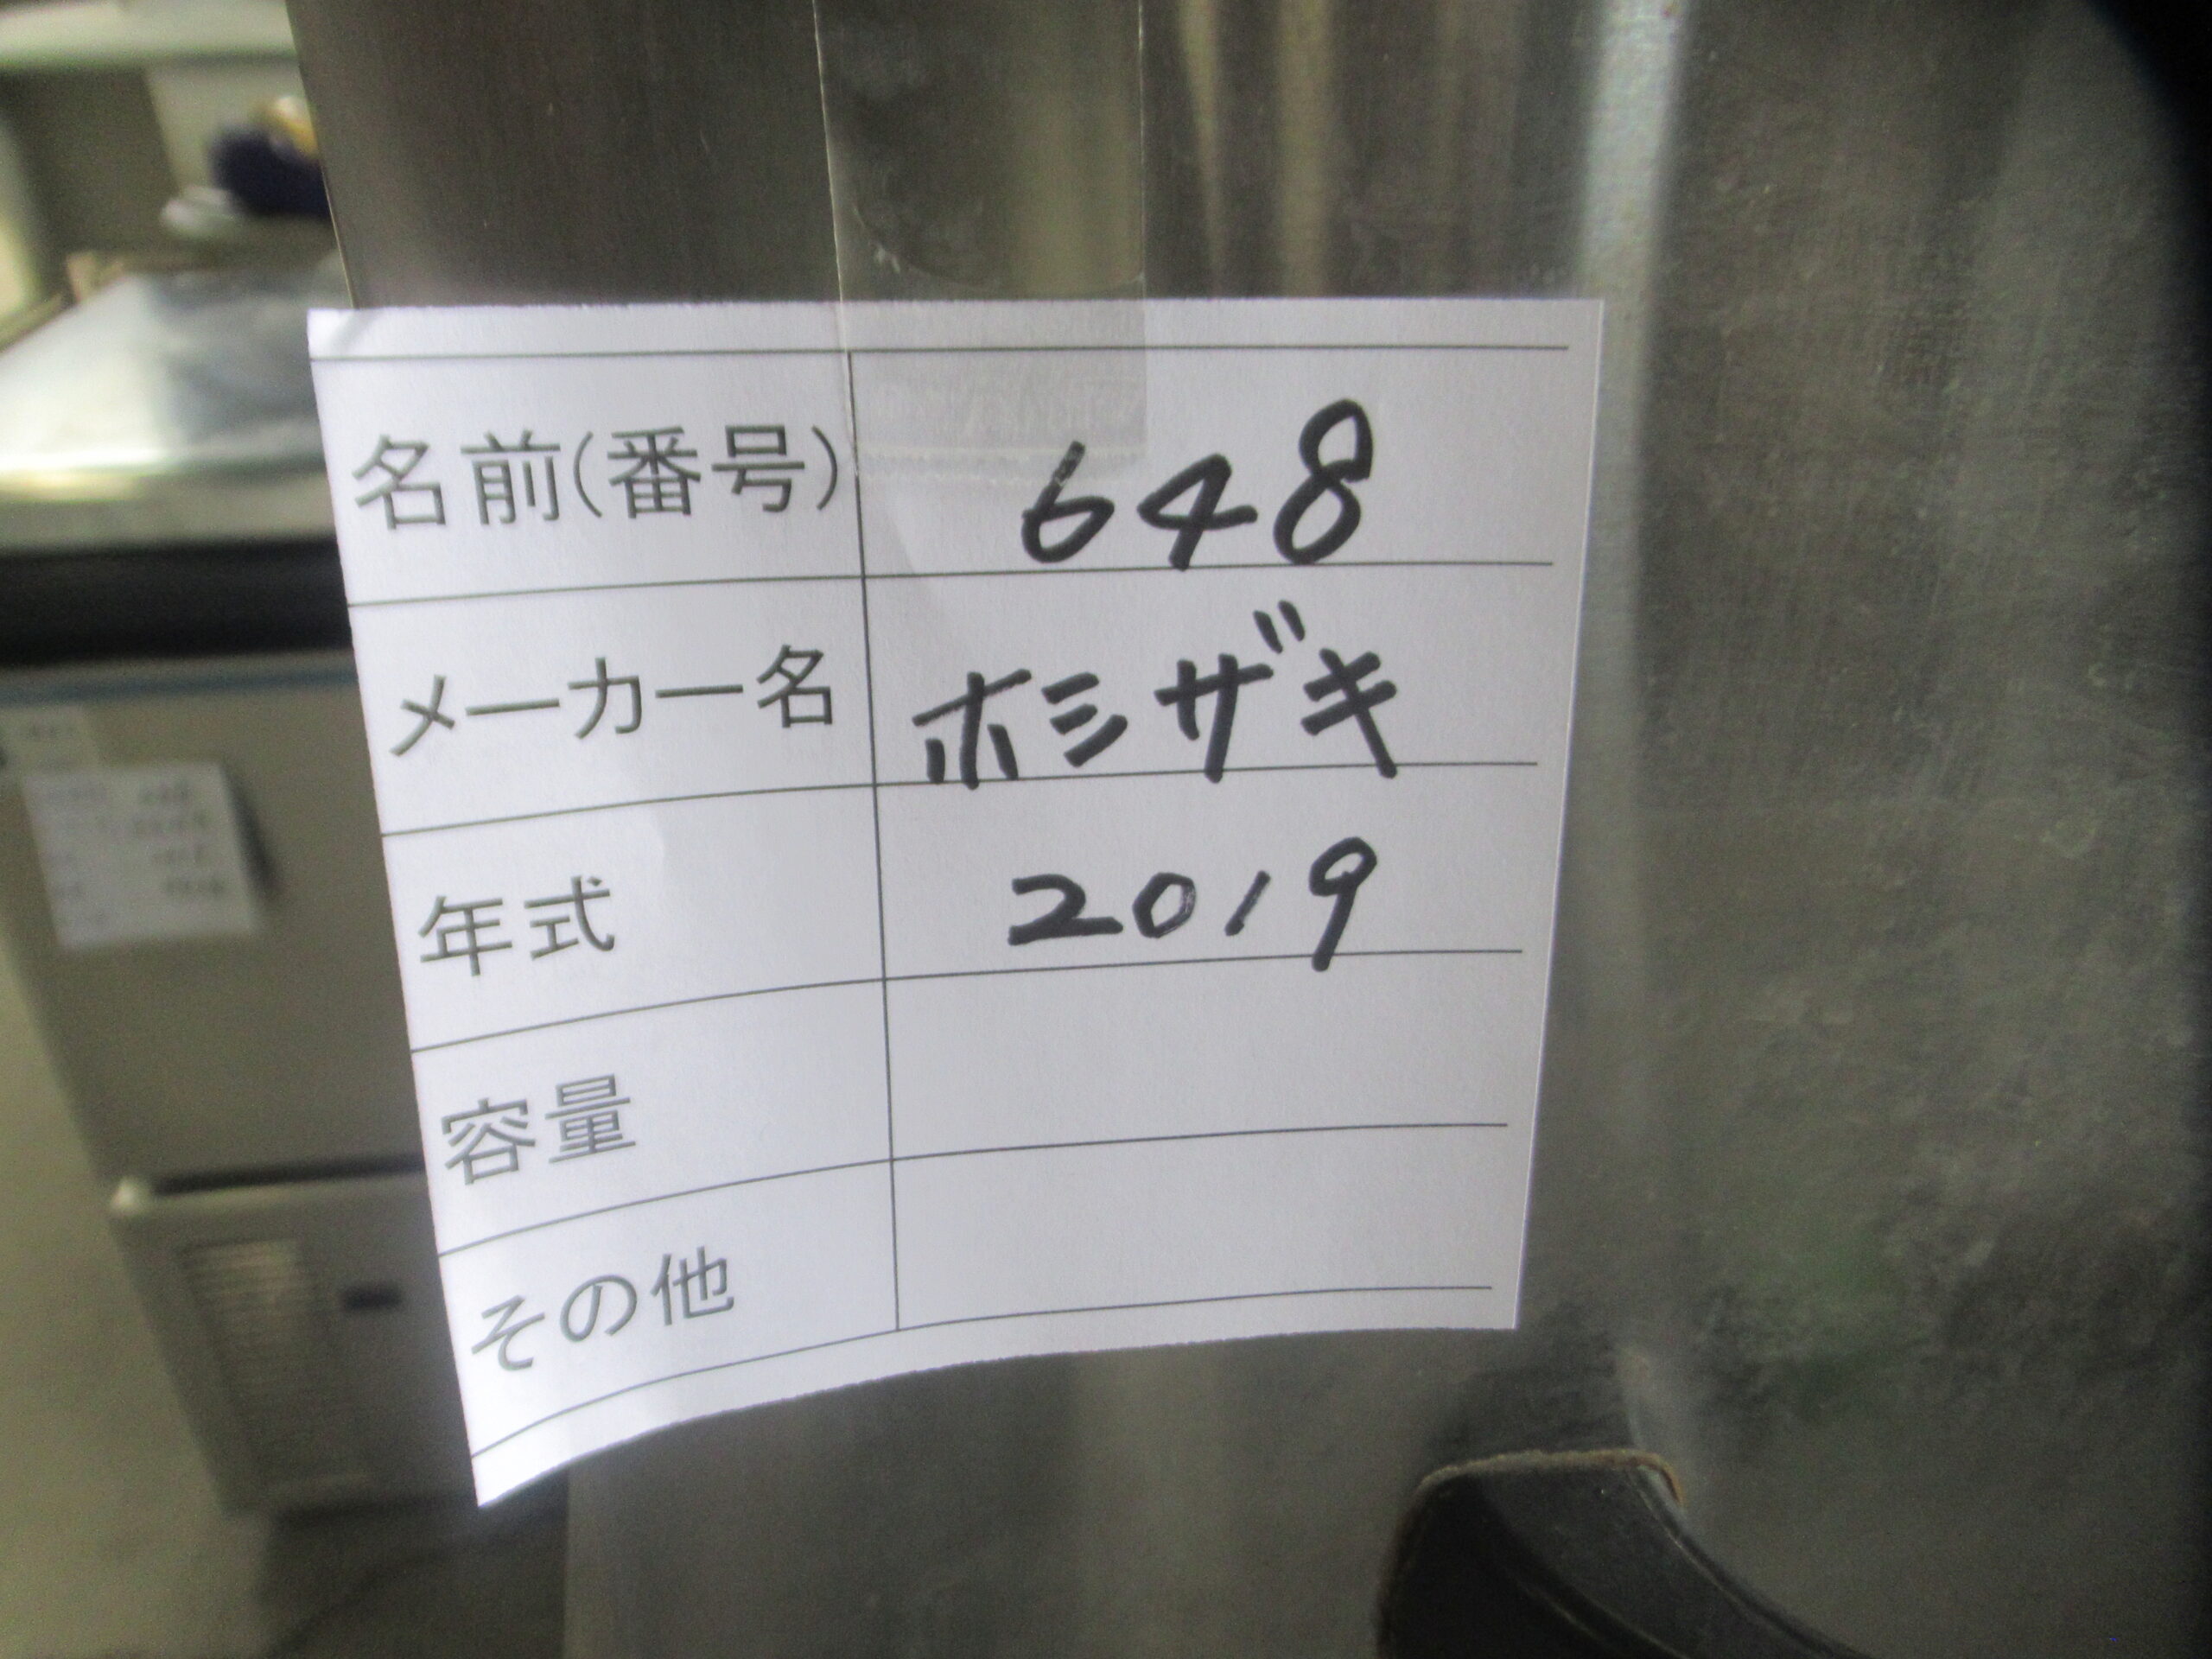 名前(番号) 648
メーカー名 ホシザキ
年式 2019
容量
その他